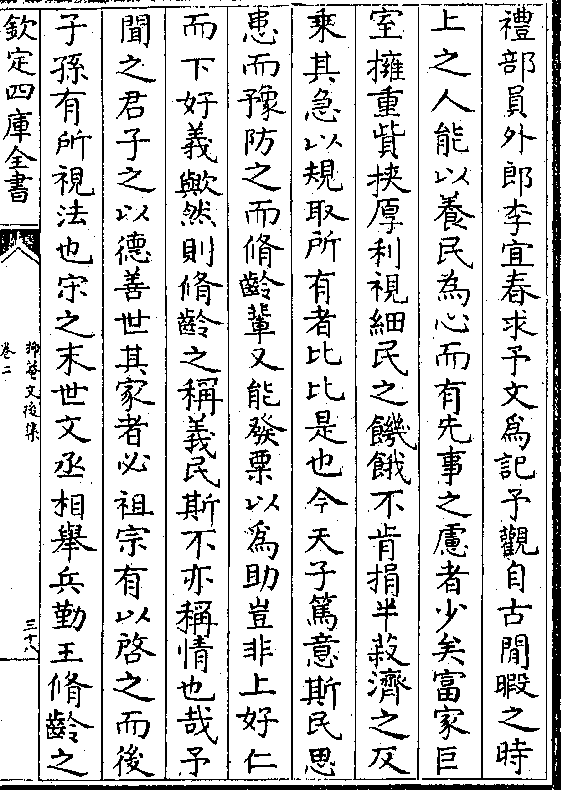 禮部員外郎李宜春求予文爲記予觀自古閒暇之時
上之人能以養民為心而有先事之慮者少矣富家巨
室擁重貲挾厚利視細民之饑餓不肯捐半菽濟之反
乘其急以規取所有者比比是也今天子篤意斯民思
患而豫防之而脩齡輩又能發粟以爲助豈非上好仁
而下好義歟然則脩齡之稱義民斯不亦稱情也哉予
聞之君子之以德善世其家者必祖宗有以啓之而後
子孫有所視法也宋之末世文丞相舉兵勤王脩齡之
欽定四庫全書
抑菴文後集
卷二
三十八